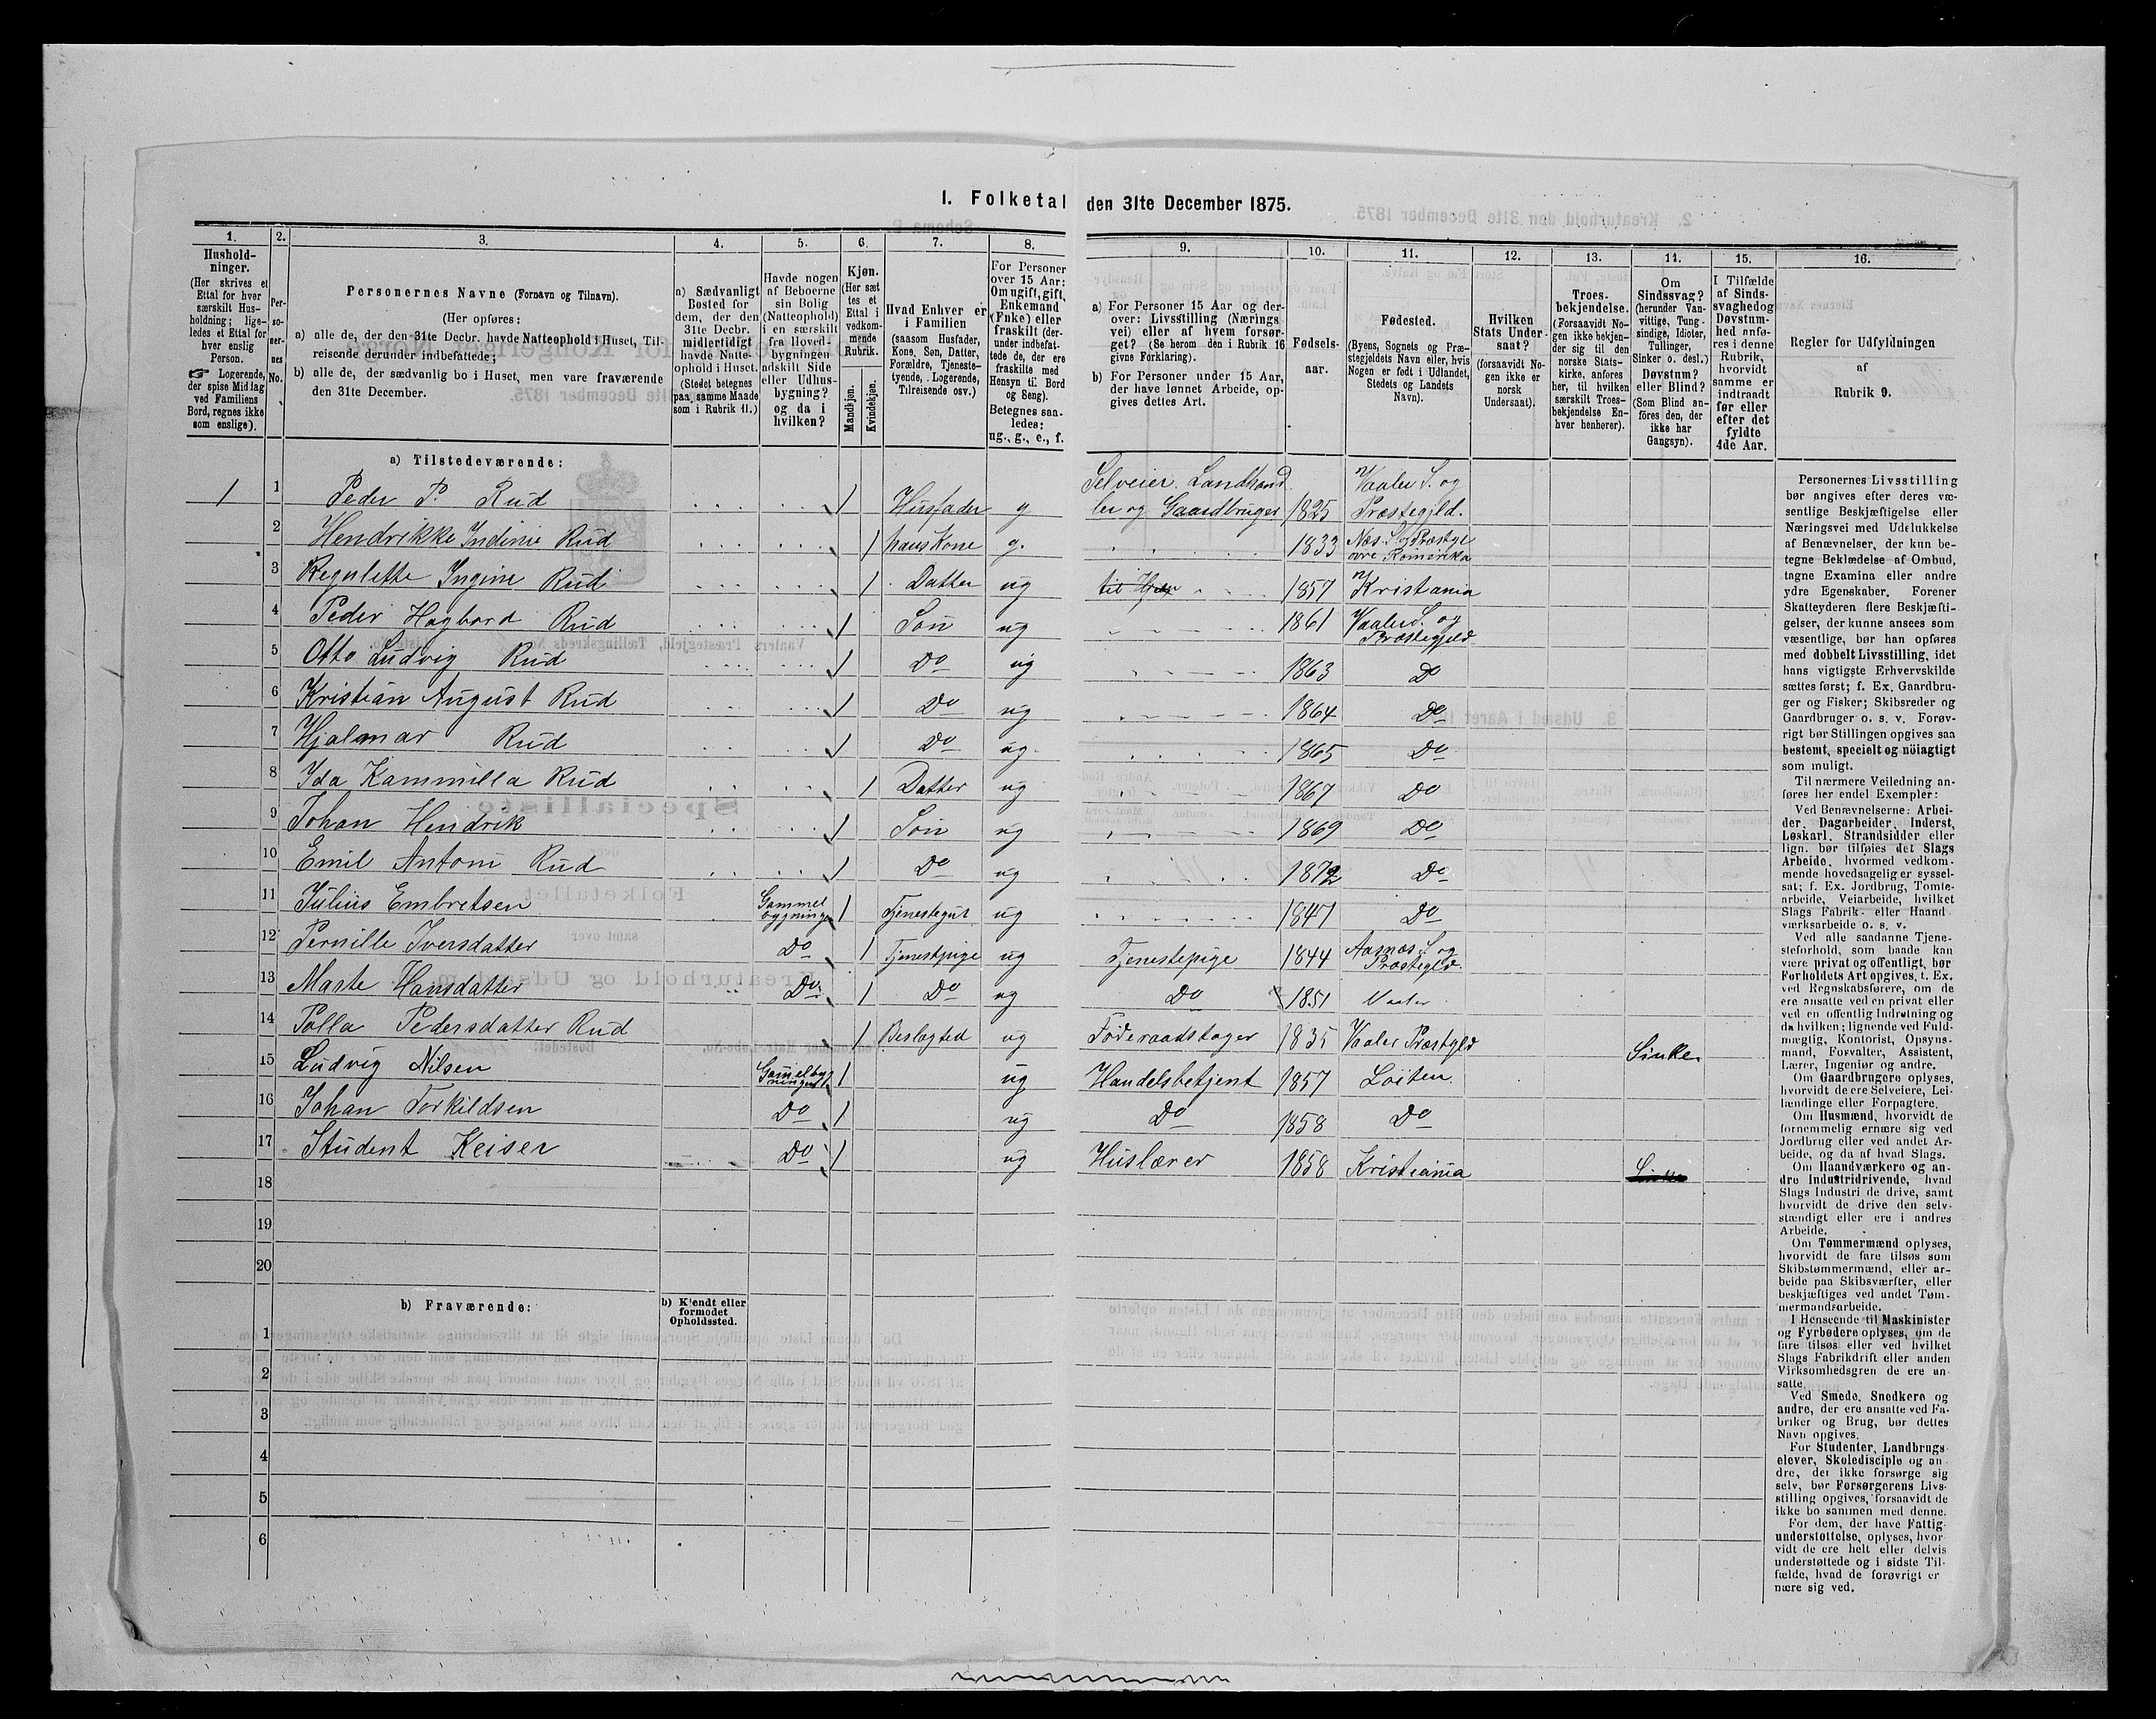 I. Folketal den 31te December 1875.
1. 2. 3. 4. 5. 6. 7. 8. 9. 10. 11. 12. 13. 14. 15. 16.
Hushold-
ninger.
(Her skrives et
Ettal for hver
særskilt Hus-
holdning; lige-
ledes et Ettal for
hver enslig
Person.
☞ Logerende,
der spise Middag
ved Familiens
Bord, regnes ikke
som enslige).
Per-
so-
ner-
nes
No.
Personernes Navne (Fornavn og Tilnavn).
(Her opføres:
a) alle de, der den 31te Decbr. havde Natteophold i Huset, Til-
reisende derunder indbefattede;
b) alle de, der sædvanlig bo i Huset, men vare fraværende
den 31te December.
a) Sædvanligt
Bosted for
dem, der den
31te Decbr.
midlertidigt
havde Natte-
ophold i Huset.
(Stedet betegnes
paa samme Maade
som i Rubrik 11.)
Havde nogen
af Beboerne
sin Bolig
(Natteophold)
i en særskilt
fra Hoved-
bygningen
adskilt Side
eller Udhus-
bygning?
og da i
hvilken?
Kjøn.
(Her sæt
tes et
Ettal i
vedkom-
mende
Rubrik.
Mandkjøn.
Kvindekjøn.
Hvad Enhver er
i Familien
(saasom Husfader,
Kone, Søn, Datter,
Forældre, Tjeneste-
tyende, Logerende,
Tilreisende osv.)
For Personer
over 15 Aar:
Om ugift, gift,
Enkemand
(Enke) eller
fraskilt (der-
under indbefat-
tede de, der ere
fraskilte med
Hensyn til Bord
og Seng).
Betegnes saa-
ledes:
ug., g., e., f.
a) For Personer 15 Aar og der-
over: Livsstilling (Nærings
vei) eller af hvem forsør-
get? (Se herom den i Rubrik 16
givne Forklaring).
b) For Personer under 15 Aar,
der have lønnet Arbeide, op-
gives dettes Art.
Fødsels-
aar.
Fødested.
(Byens, Sognets og Præ-
stegjeldets Navn eller, hvis
Nogen er født i Udlandet,
Stedets og Landets
Navn).
Hvilken
Stats Under-
saat?
(forsaavidt No-
gen ikke er
norsk
Undersaat).
Troes-
bekjendelse.
(Forsaavidt No-
gen ikke bekjen-
der sig til den
norske Stats-
kirke, anføres
her, til hvilken
særskilt Troes-
bekjendelse En-
hver henhører).
Om
Sindssvag?
(herunder Van-
vittige, Tung-
sindige, Idioter,
Tullinger,
Sinker o. desl.)
Døvstum?
eller Blind?
(Som Blind an-
föres den, der
ikke har
Gangsyn).
I Tilfælde
af Sinds-
svaghed og
Døvstum-
hed anfø-
res i denne
Rubrik,
hvorvidt
samme er
indtraadt
før eller
efter det
fyldte
4de Aar.
Regler for Udfyldningen
af
Rubrik 9.
a) Tilstedeværende:
1 1 Peder P. Rud 1 Husfader g Selveier Landhand
ler og Gaardbruger 1825 Vaaler S. og
Præstegjld.
2 Hendrikke Indinie Rud 1 hans Kone g. 1833 Næs S. og Præstgl
øvre Romerike
3 Regulette Ingine Rud 1 Datter ug 1857 Kristiania
4 Peder Hagbard Rud 1 Søn ug 1861 Vaaler S. og
Præstegjeld
5 Otto Ludvig Rud 1 Do ug 1863 Do
6 Kristian August Rud 1 Do ug 1864 Do
7 Hjalmar Rud 1 Do ug. 1865 Do
8 Ida Kammilla Rud 1 Datter ug 1867 Do
9 Johan Hendrik 1 Søn ug 1869 Do
10 Emil Antoni Rud 1 Do ug 1872 Do
11 Julius Embretsen Gammel
bygningen 1 Tjenestegut ug 1847 Do
12 Pernille Iversdatter Do 1 Tjenestpige ug Tjenestepige 1844 Aasnæs S. og
Præstegld.
13 Marte Hansdatter Do 1 Do ug Do 1851 Vaaler
14 Polla Pedersdatter Rud 1 Beslægted ug Føderaadstager 1835 Vaaler Præstgld Sinke
15 Ludvig Nilsen Gamelbyg
ningen 1 ug Handelsbetjent 1857 Løiten
16 Johan Torkildsen Do 1 ug Do 1858 Do
17 Student Keiser Do 1 ug Huslærer 1858 Kristiania Sinke
18
19
20
b) Fraværende:
b) Kjendt eller
formodet
Opholdssted.
1
2
3
4
5
6
Personernes Livsstilling
bør angives efter deres væ-
sentlige Beskjæftigelse eller
Næringsvei med Udelukkelse
af Benævnelser, der kun be-
tegne Beklædelse af Ombud,
tagne Examina eller andre
ydre Egenskaber. Forener
Skatteyderen flere Beskjæfti-
gelser, der kunne ansees som
væsentlige, bør han opføres
med dobbelt Livsstilling, idet
hans vigtigste Erhvervskilde
sættes først; f. Ex. Gaardbru-
ger og Fisker; Skibsreder og
Gaardbruger o. s. v. Forøv-
rigt bør Stillingen opgives saa
bestemt, specielt og nöiagtigt
som muligt.
Til nærmere Veiledning an-
føres her endel Exempler:
Ved Benævnelserne: Arbei-
der, Dagarbeider, Inderst,
Løskarl, Strandsidder eller
lign. bør tilføies det Slags
Arbeide, hvormed vedkom-
mende hovedsagelig er syssel-
sat; f. Ex. Jordbrug, Tomte-
arbeide, Veiarbeide, hvilket
Slags Fabrik- eller Haand
værksarbeide o. s. v.
Ved alle saadanne Tjene-
steforhold, som baade kan
være privat og offentligt, bør
Forholdets Art opgives, t. Ex.
ved Regnskabsførere, om de
ere ansatte ved en privat eller
ved en offentlig Indretning og
da hvilken; lignende ved Fuld-
mægtig, Kontorist, Opsyns-
mand, Forvalter, Assistent,
Lærer, Ingeniør og andre.
Om Gaardbrugere oplyses,
hvorvidt de ere Selveiere, Lei-
lændinge eller Forpagtere.
Om Husmænd, hvorvidt de
fornemmelig ernære sig ved
Jordbrug eller ved andet Ar-
beide, og da af hvad Slags.
Om Haandværkere og an-
dre Industridrivende, hvad
Slags Industri de drive, samt
hvorvidt de drive den selv-
stændigt eller ere i andres
Arbeide.
Om Tømmermænd oplyses,
hvorvidt de fare tilsøs som
Skibstømmermænd, eller ar-
beide paa Skibsværfter, eller
beskjæftiges ved andet Tøm-
mermandsarbeide.
I Henseende til Maskinister
og Fyrbødere oplyses, om de
fare tilsøs eller ved hvilket
Slags Fabrikdrift eller anden
Virksomhedsgren de ere an-
satte.
Ved Smede, Snedkere og
andre, der ere ansatte ved Fa-
briker og Brug, bør dettes
Navn opgives.
For Studenter, Landbrugs
elever, Skoledisciple og an-
dre, der ikke forsørge sig
selv, bør Forsørgerens Livs-
stilling opgives, forsaavidt de
ikke bo sammen med denne.
For dem, der have Fattig
understøttelse, oplyses, hvor
vidt de ere helt eller delvis
understøttede og i sidste Til-
fælde, hvad de forøvrigt er
nære sig ved.